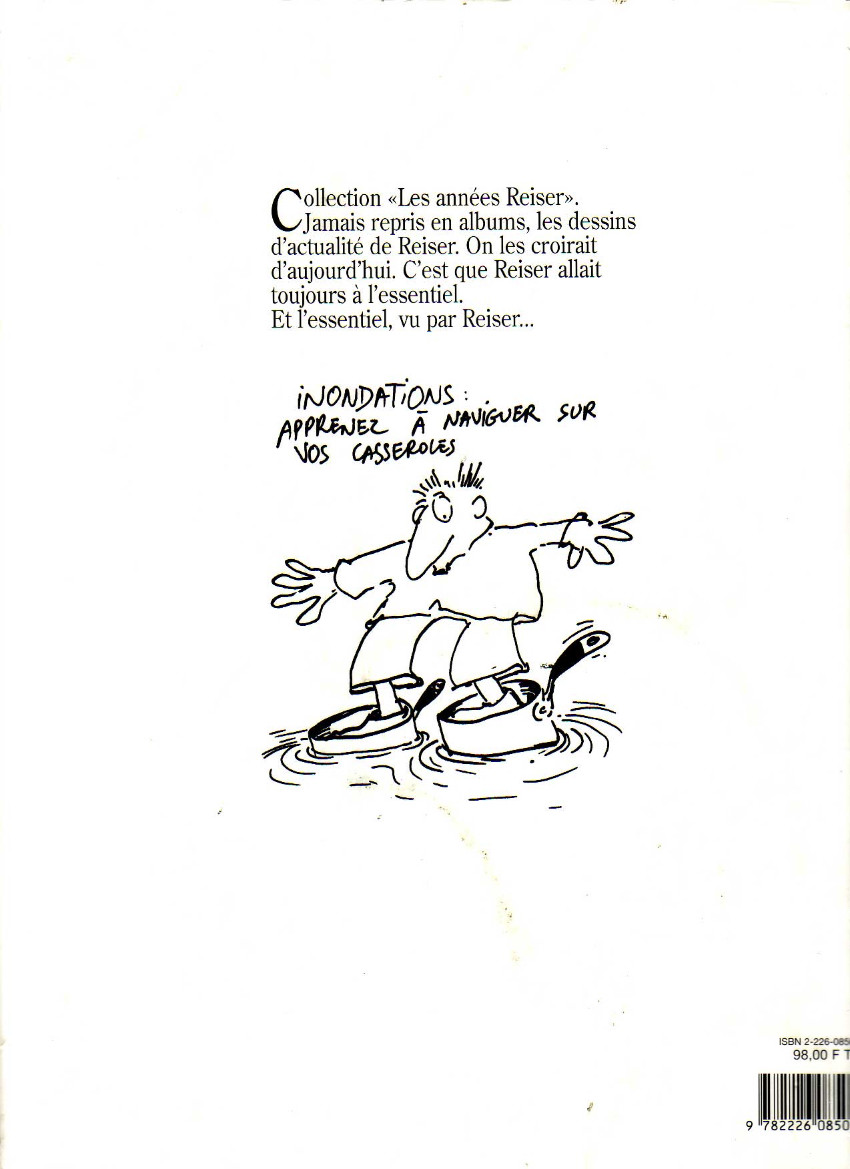 Collection «Les années Reiser».
Jamais repris en albums, les dessins
d'actualité de Reiser. On les croirait
d'aujourd'hui. C'est que Reiser allait
toujours à l'essentiel.
Et l'essentiel, vu par Reiser...
iNONDATiONS :
APPRENEZ À NAViGUER SUR
VOS CASSEROLES
ISBN 2-226-085
98,00 F T
9 782226 0850